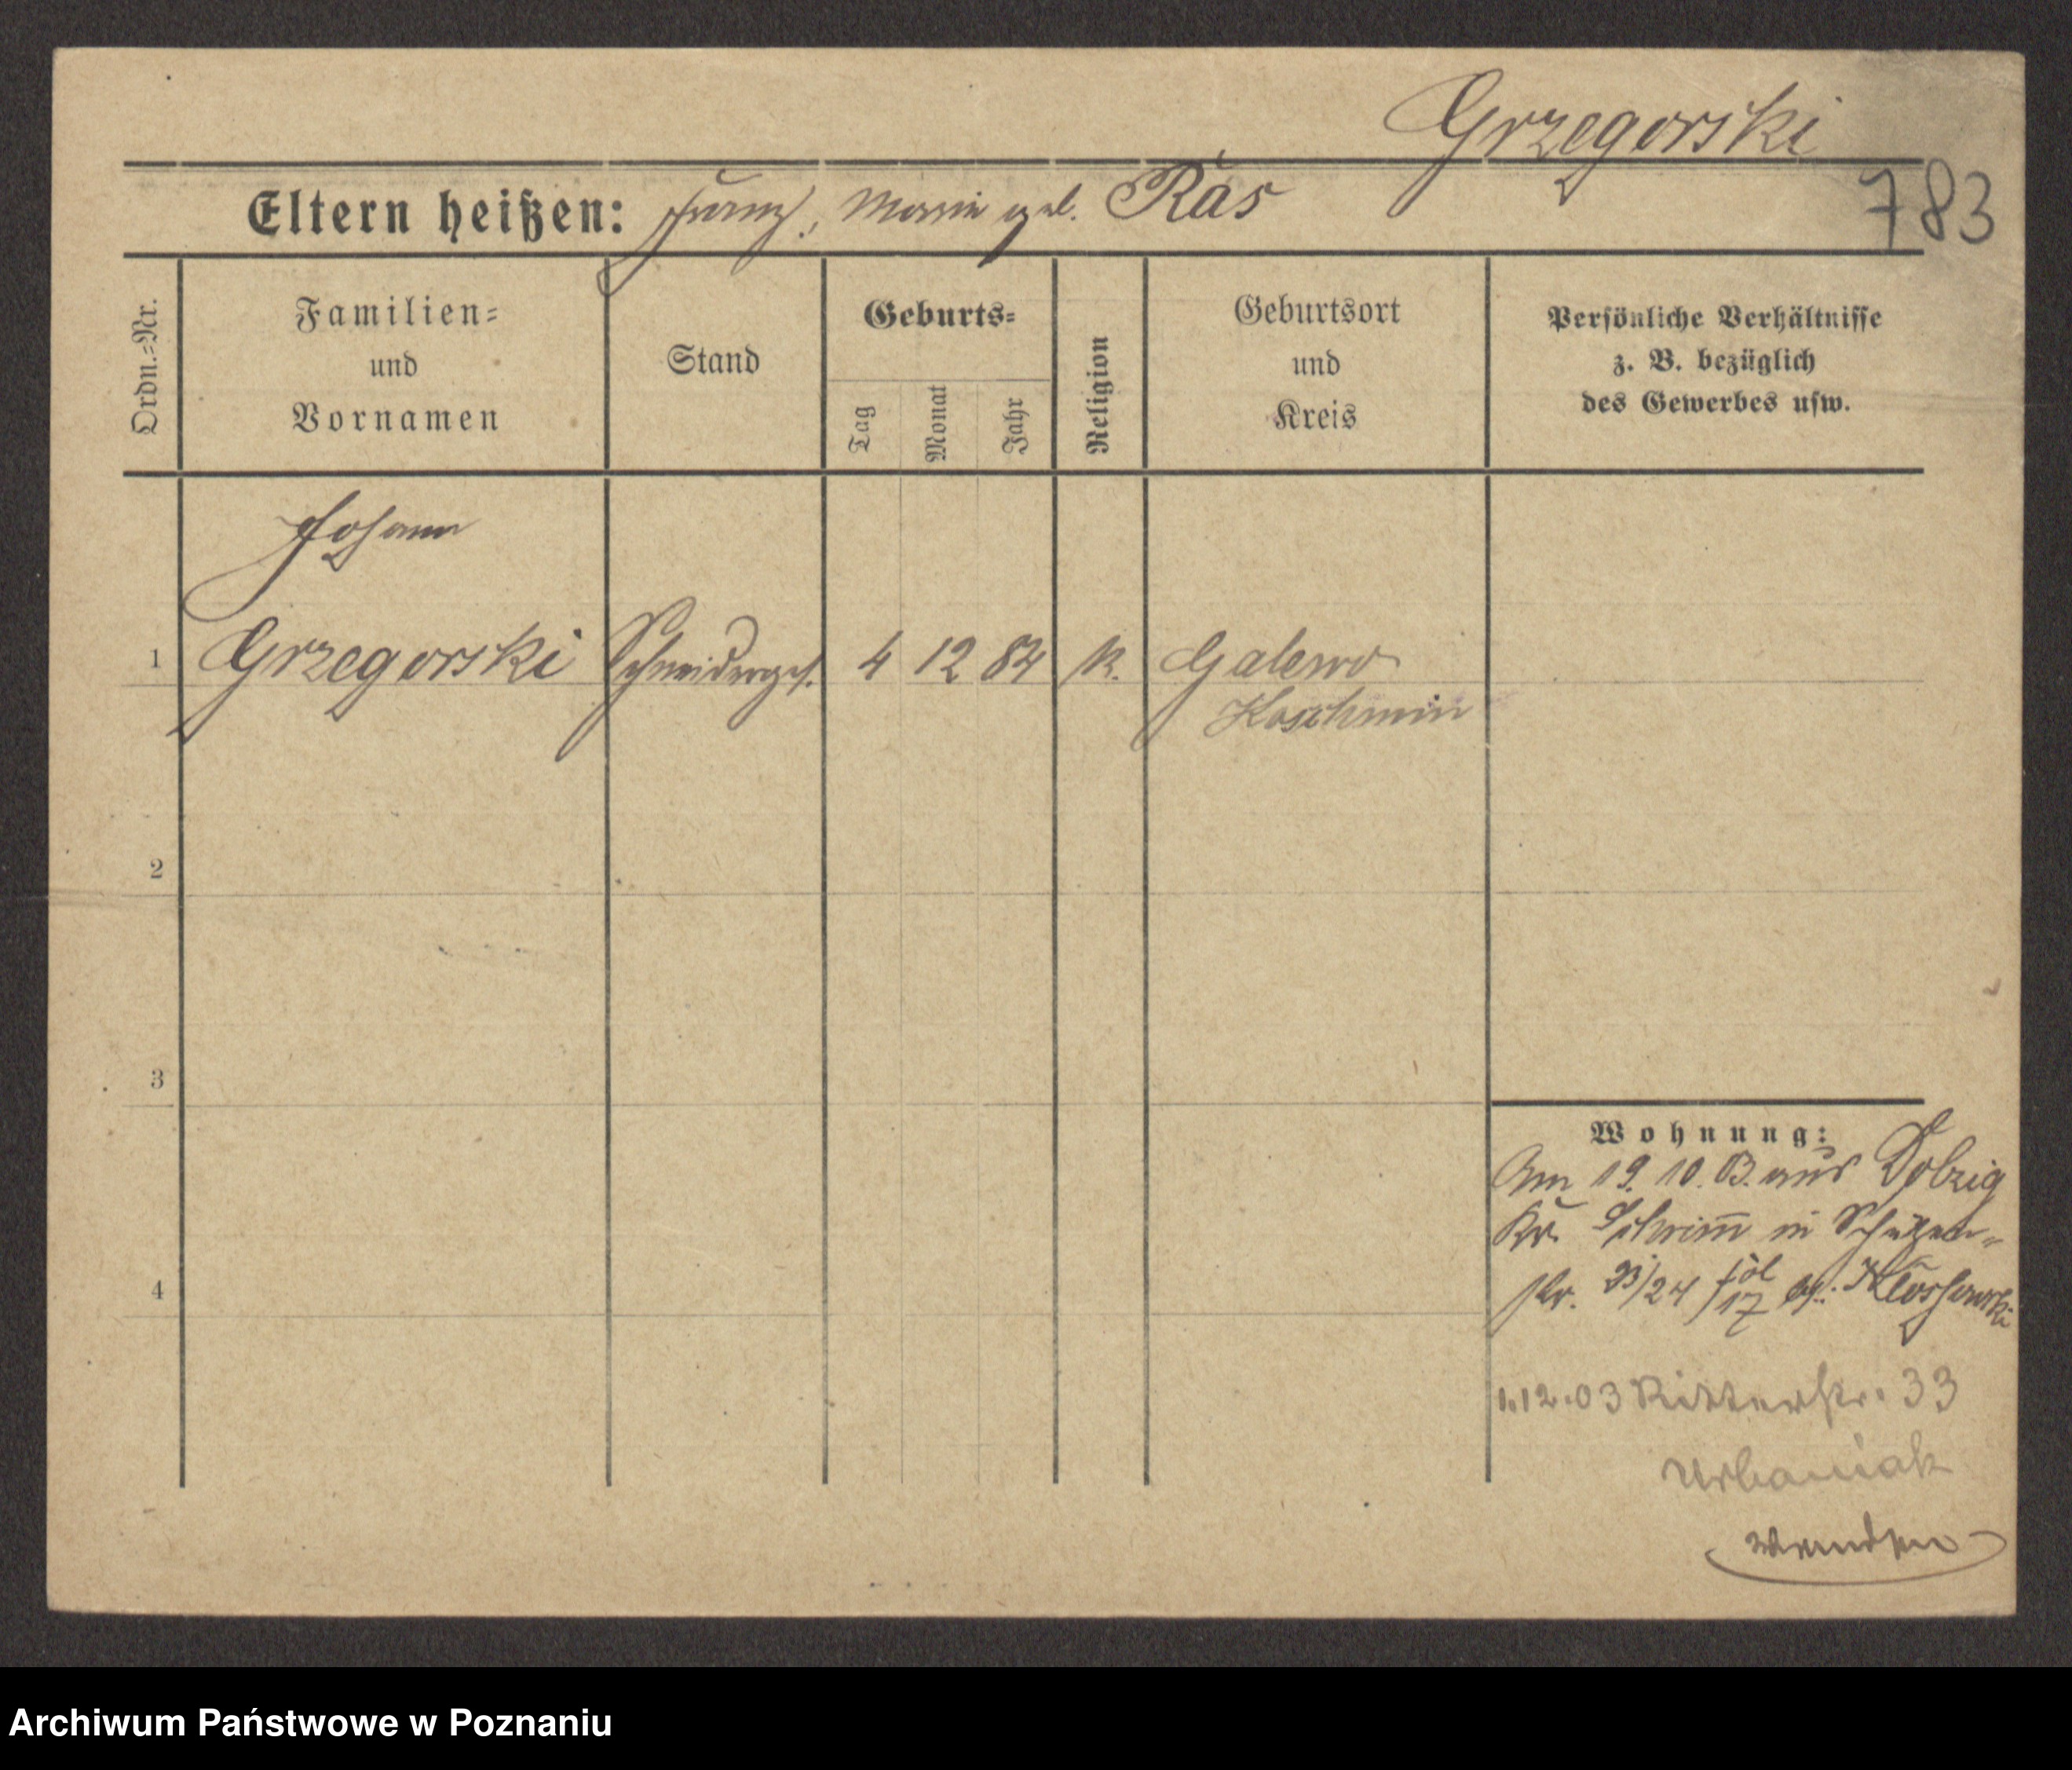 Grzegorski
783
Eltern heißen: Franz, Marie geb. Ras
Ordn.=Nr.
Familien=
und
Vornamen
Stand
Geburts=
Tag
Monat
Jahr
Religion
Geburtsort
und
Kreis
Persönliche Verhältnisse
z. B. bezüglich
des Gewerbes usw.
Johann
1 Grzegorski Schneiderges. 4 12 84 k. Galewo
Koschmin
2
3
4
Wohnung:
Am 19. 10. 03. aus Dolzig
Kr. Schrimm in Schützen=
str. 23/24 bei
1.12.03 Ritterstr. 33
Urbaniak
wenden
Archiwum Państwowe w Poznaniu